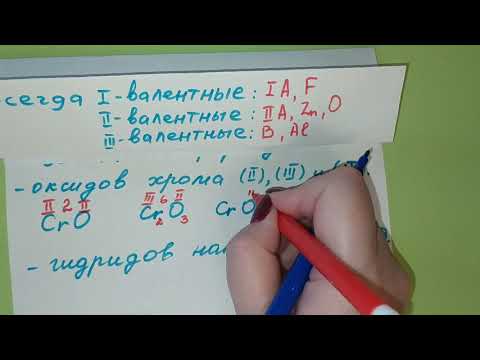 сегда I-валентные: IA, F
II-валентные: IIA, Zn, O
III-валентные: B, Al
-оксидов хрома (II), (III) и
II 2 II III 6 II
CrO Cr2O3 CrO
- гидридов